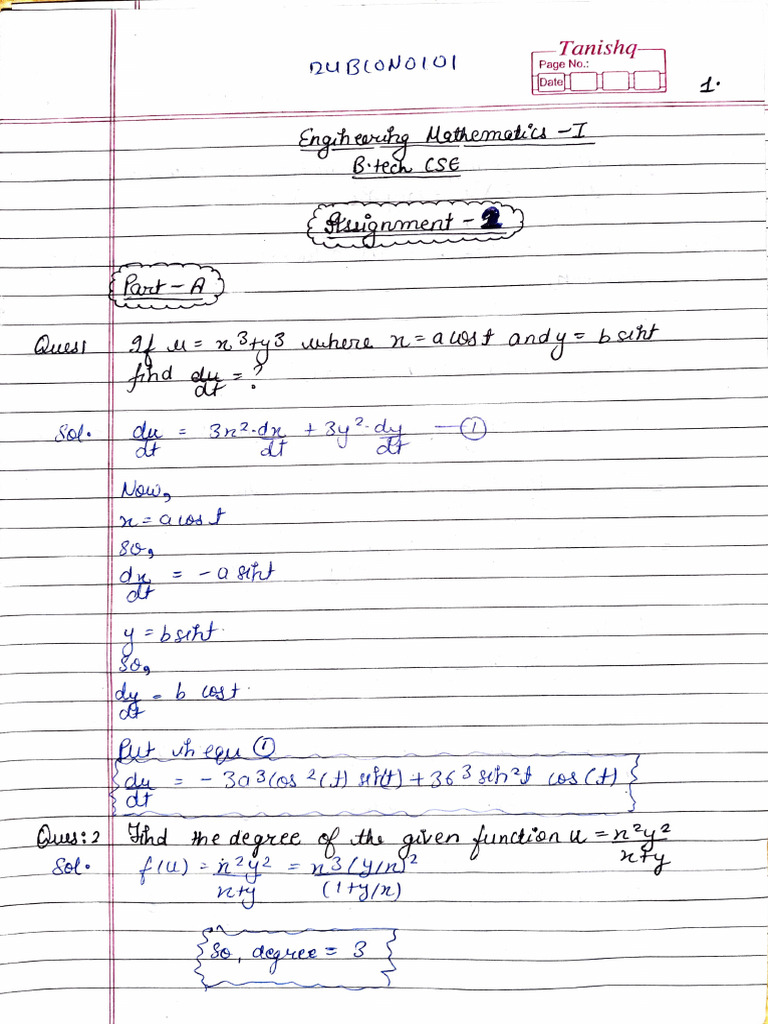 Tanishq
Page No.:
Date
1.
Engineering Mathematics - I
B.tech CSE
Assignment - 2
Part - A
Ques1 If u = x3+y3 where x = a cos t and y = b sint
find du/dt = ?
Sol. du/dt = 3x2.dx/dt + 3y2.dy/dt — ①
Now,
x = a cos t
so,
dx/dt = - a sint
y = b sint.
So,
dy/dt = b cost.
Put in equ ①
du/dt = - 3a3 cos2(t) sin(t) + 3b3 sin2t cos(t)
Ques:2 Find the degree of the given function u = x2y2/x+y
Sol. f(u) = x2y2/x+y = x3(y/x)2/(1+y/x)
So, degree = 3